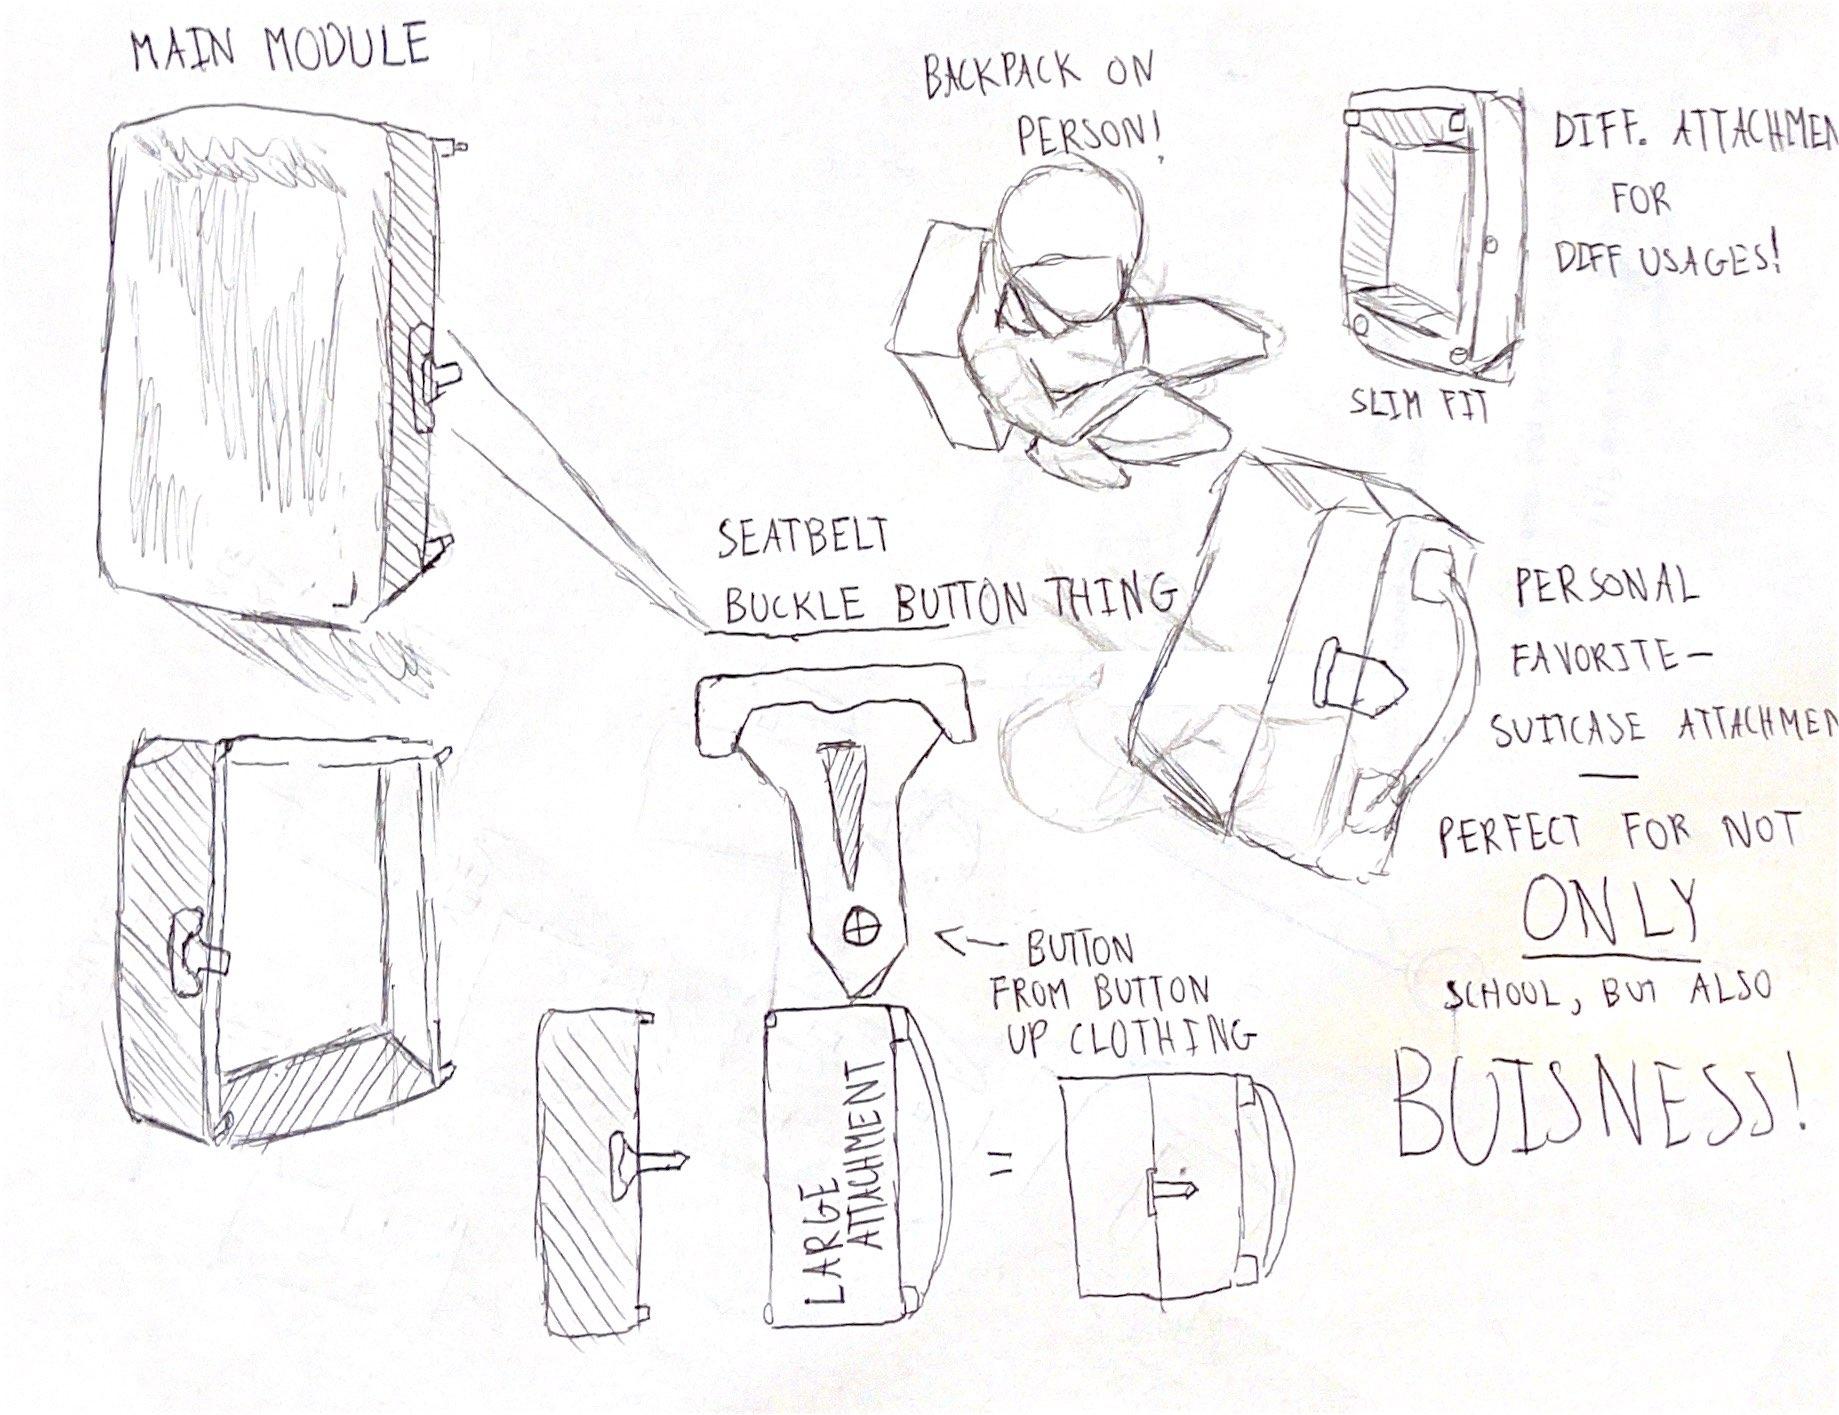 MAIN MODULE
BACKPACK ON
PERSON!
DIFF. ATTACHMEN
FOR
DIFF USAGES!
SLIM FIT
SEATBELT
BUCKLE BUTTON THING
PERSONAL
FAVORITE-
SUITCASE ATTACHMEN
—
PERFECT FOR NOT
ONLY
SCHOOL, BUT ALSO
BUISNESS!
← BUTTON
FROM BUTTON
UP CLOTHING
LARGE
ATTACHMENT
=